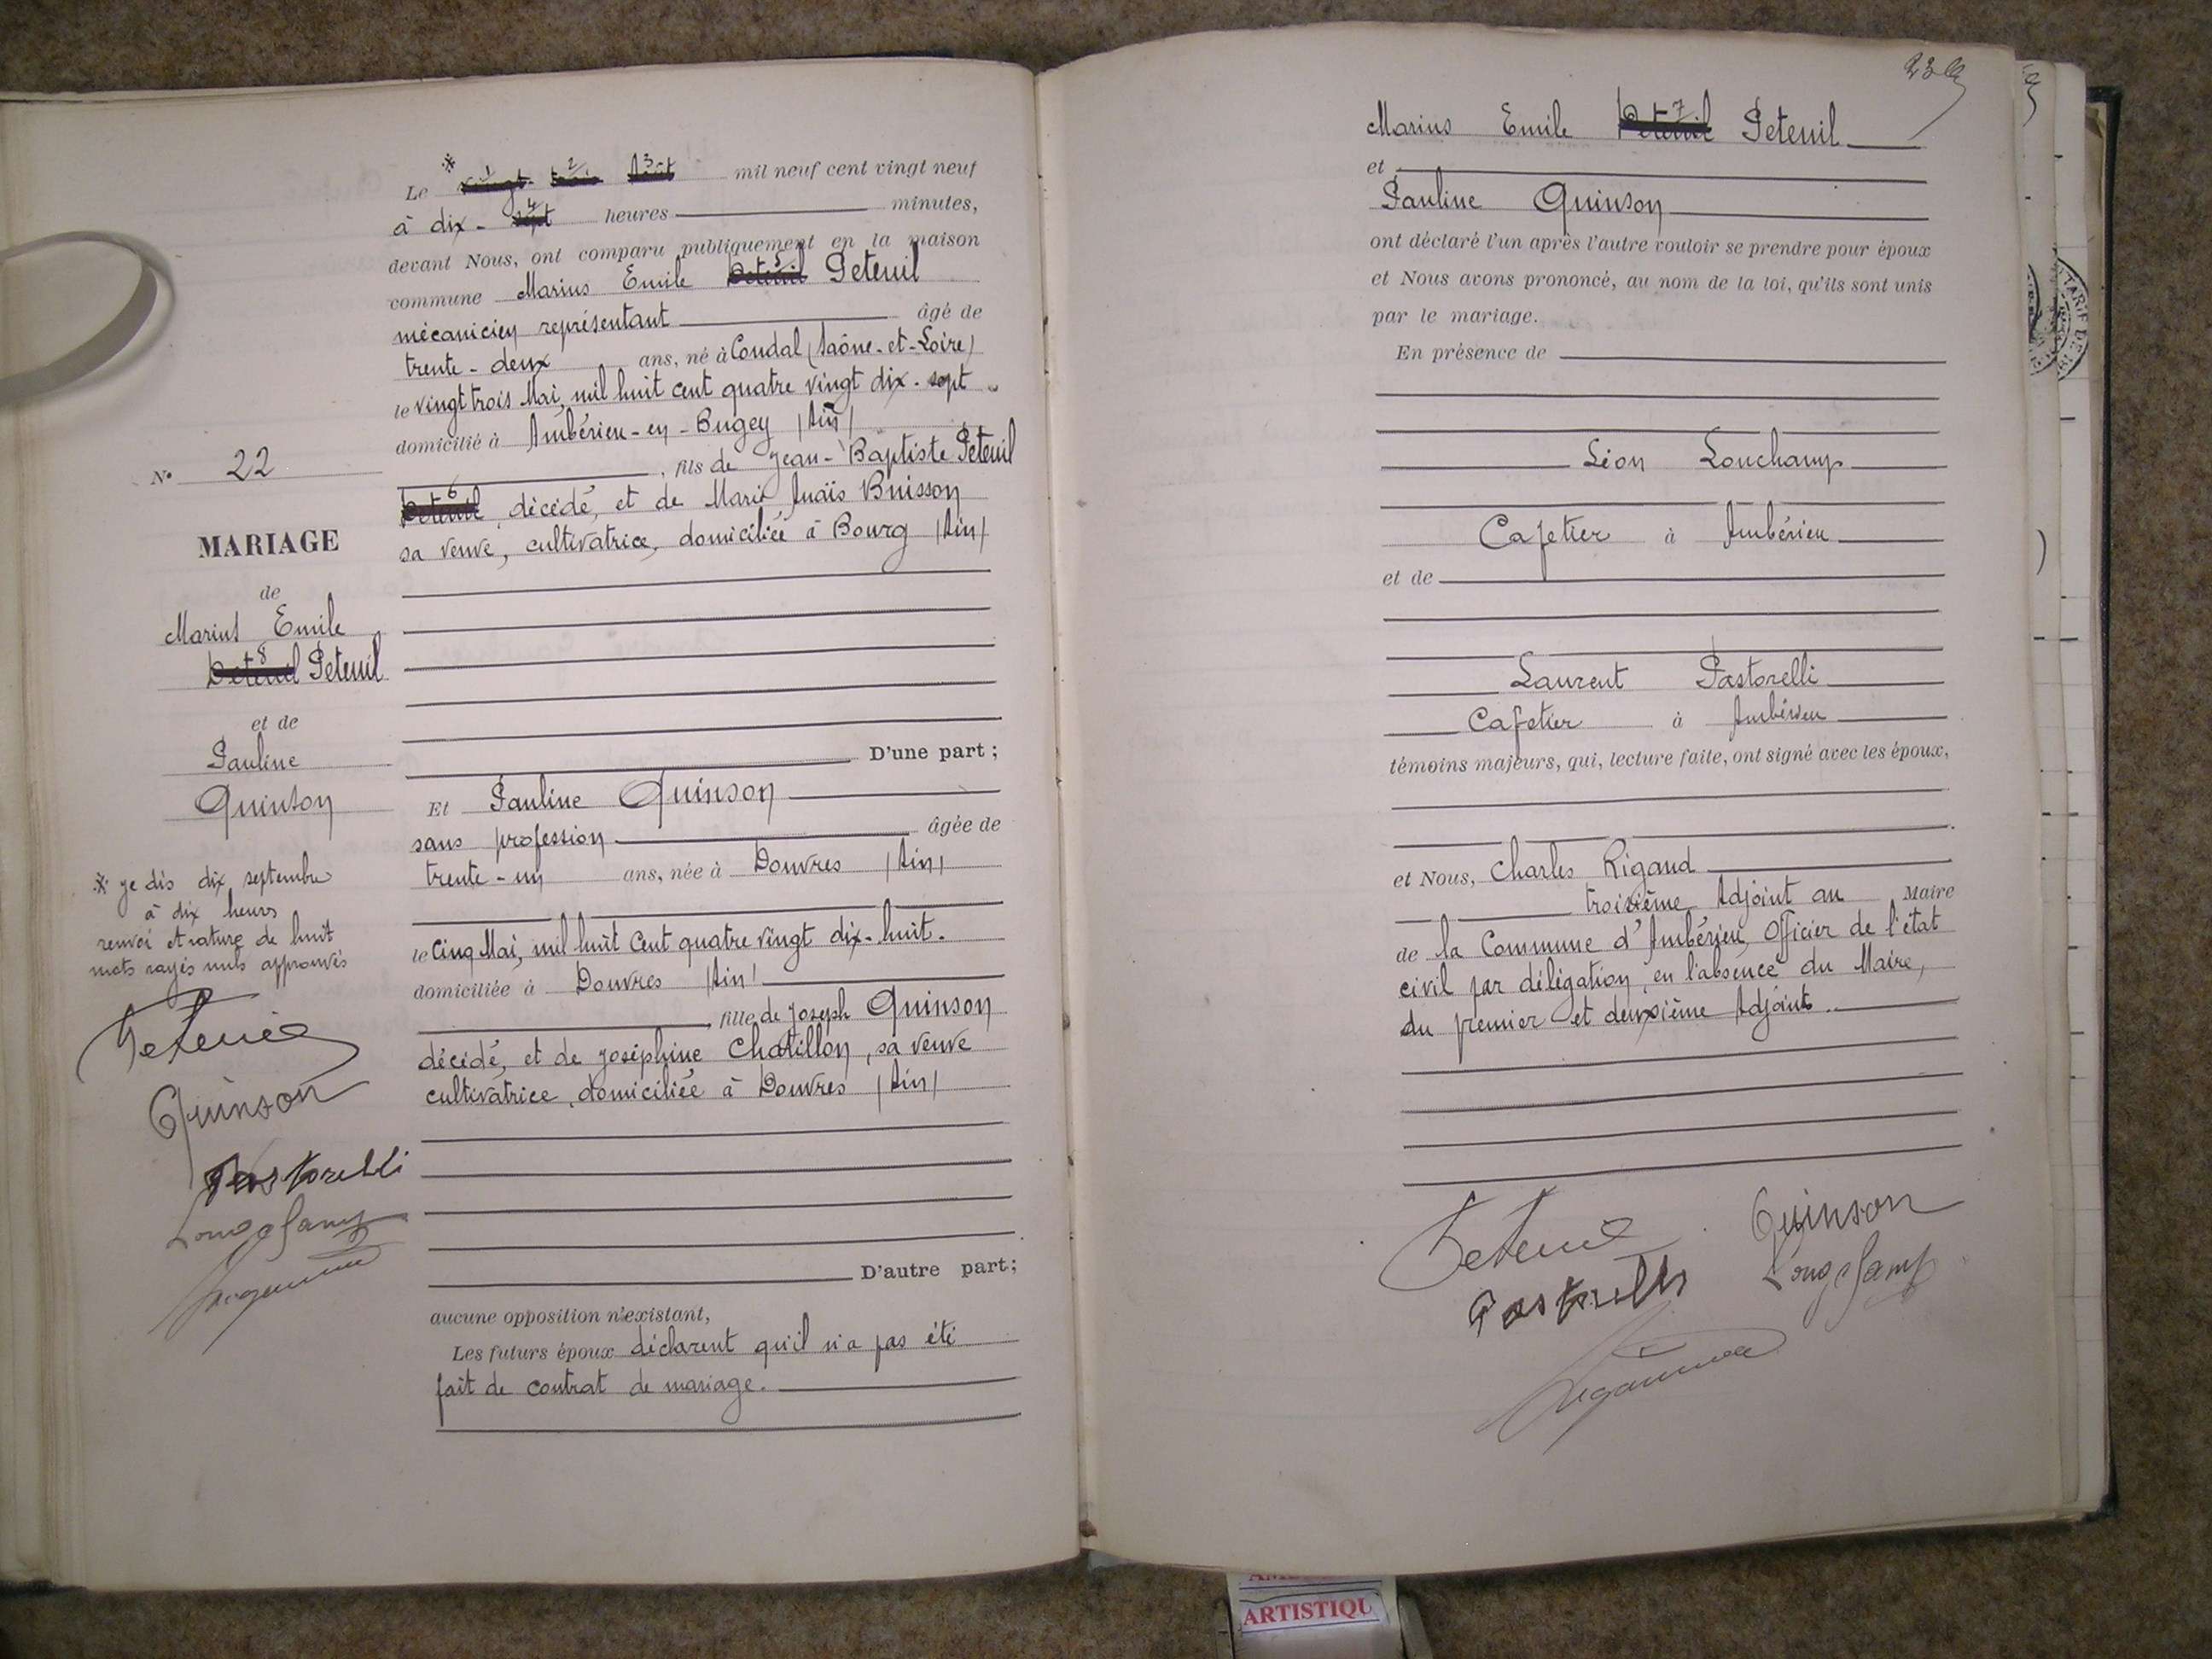 Le vingt trois Août mil neuf cent vingt neuf
à dix-sept heures minutes,
devant Nous, ont comparu publiquement en la maison
commune Marius Emile Deteuil Peteuil
mécanicien représentant âgé de
trente-deux ans, né à Condal (Saône-et-Loire)
le vingt trois Mai, mil huit cent quatre vingt dix-sept
domicilié à Ambérieu-en-Bugey (Ain)
, fils de Jean-Baptiste Peteuil
Deteuil, décédé, et de Marie Anaïs Buisson
sa veuve, cultivatrice, domiciliée à Bourg (Ain)
D'une part ;
Et Pauline Quinson
sans profession âgée de
trente-un ans, née à Douvres (Ain)
le Cinq Mai, mil huit Cent quatre vingt dix-huit.
domiciliée à Douvres (Ain)
, fille de Joseph Quinson
décédé, et de Joséphine Chatillon, sa veuve
cultivatrice, domiciliée à Douvres (Ain)
D'autre part ;
aucune opposition n'existant,
Les futurs époux déclarent qu'il n'a pas été
fait de contrat de mariage.
N° 22
MARIAGE
de
Marius Emile
Deteuil Peteuil
et de
Pauline
Quinson
* je dis dix septembre
à dix heures
renvoi et rature de huit
mots rayés nuls approuvés
Peteuil
Quinson
Pastorelli
Longchamp
23
Marius Emile Deteuil Peteuil
et
Pauline Quinson
ont déclaré l'un après l'autre vouloir se prendre pour époux
et Nous avons prononcé, au nom de la loi, qu'ils sont unis
par le mariage.
En présence de
Léon Lonchamp
Cafetier à Ambérieu
et de
Laurent Pastorelli
Cafetier à Ambérieu
témoins majeurs, qui, lecture faite, ont signé avec les époux,
et Nous, Charles Rigaud
troisième Adjoint au Maire
de la Commune d'Ambérieu, Officier de l'état
civil par délégation, en l'absence du Maire,
du premier et deuxième Adjoints.
Peteuil Quinson
Pastorelli Longchamp
ARTISTIQU